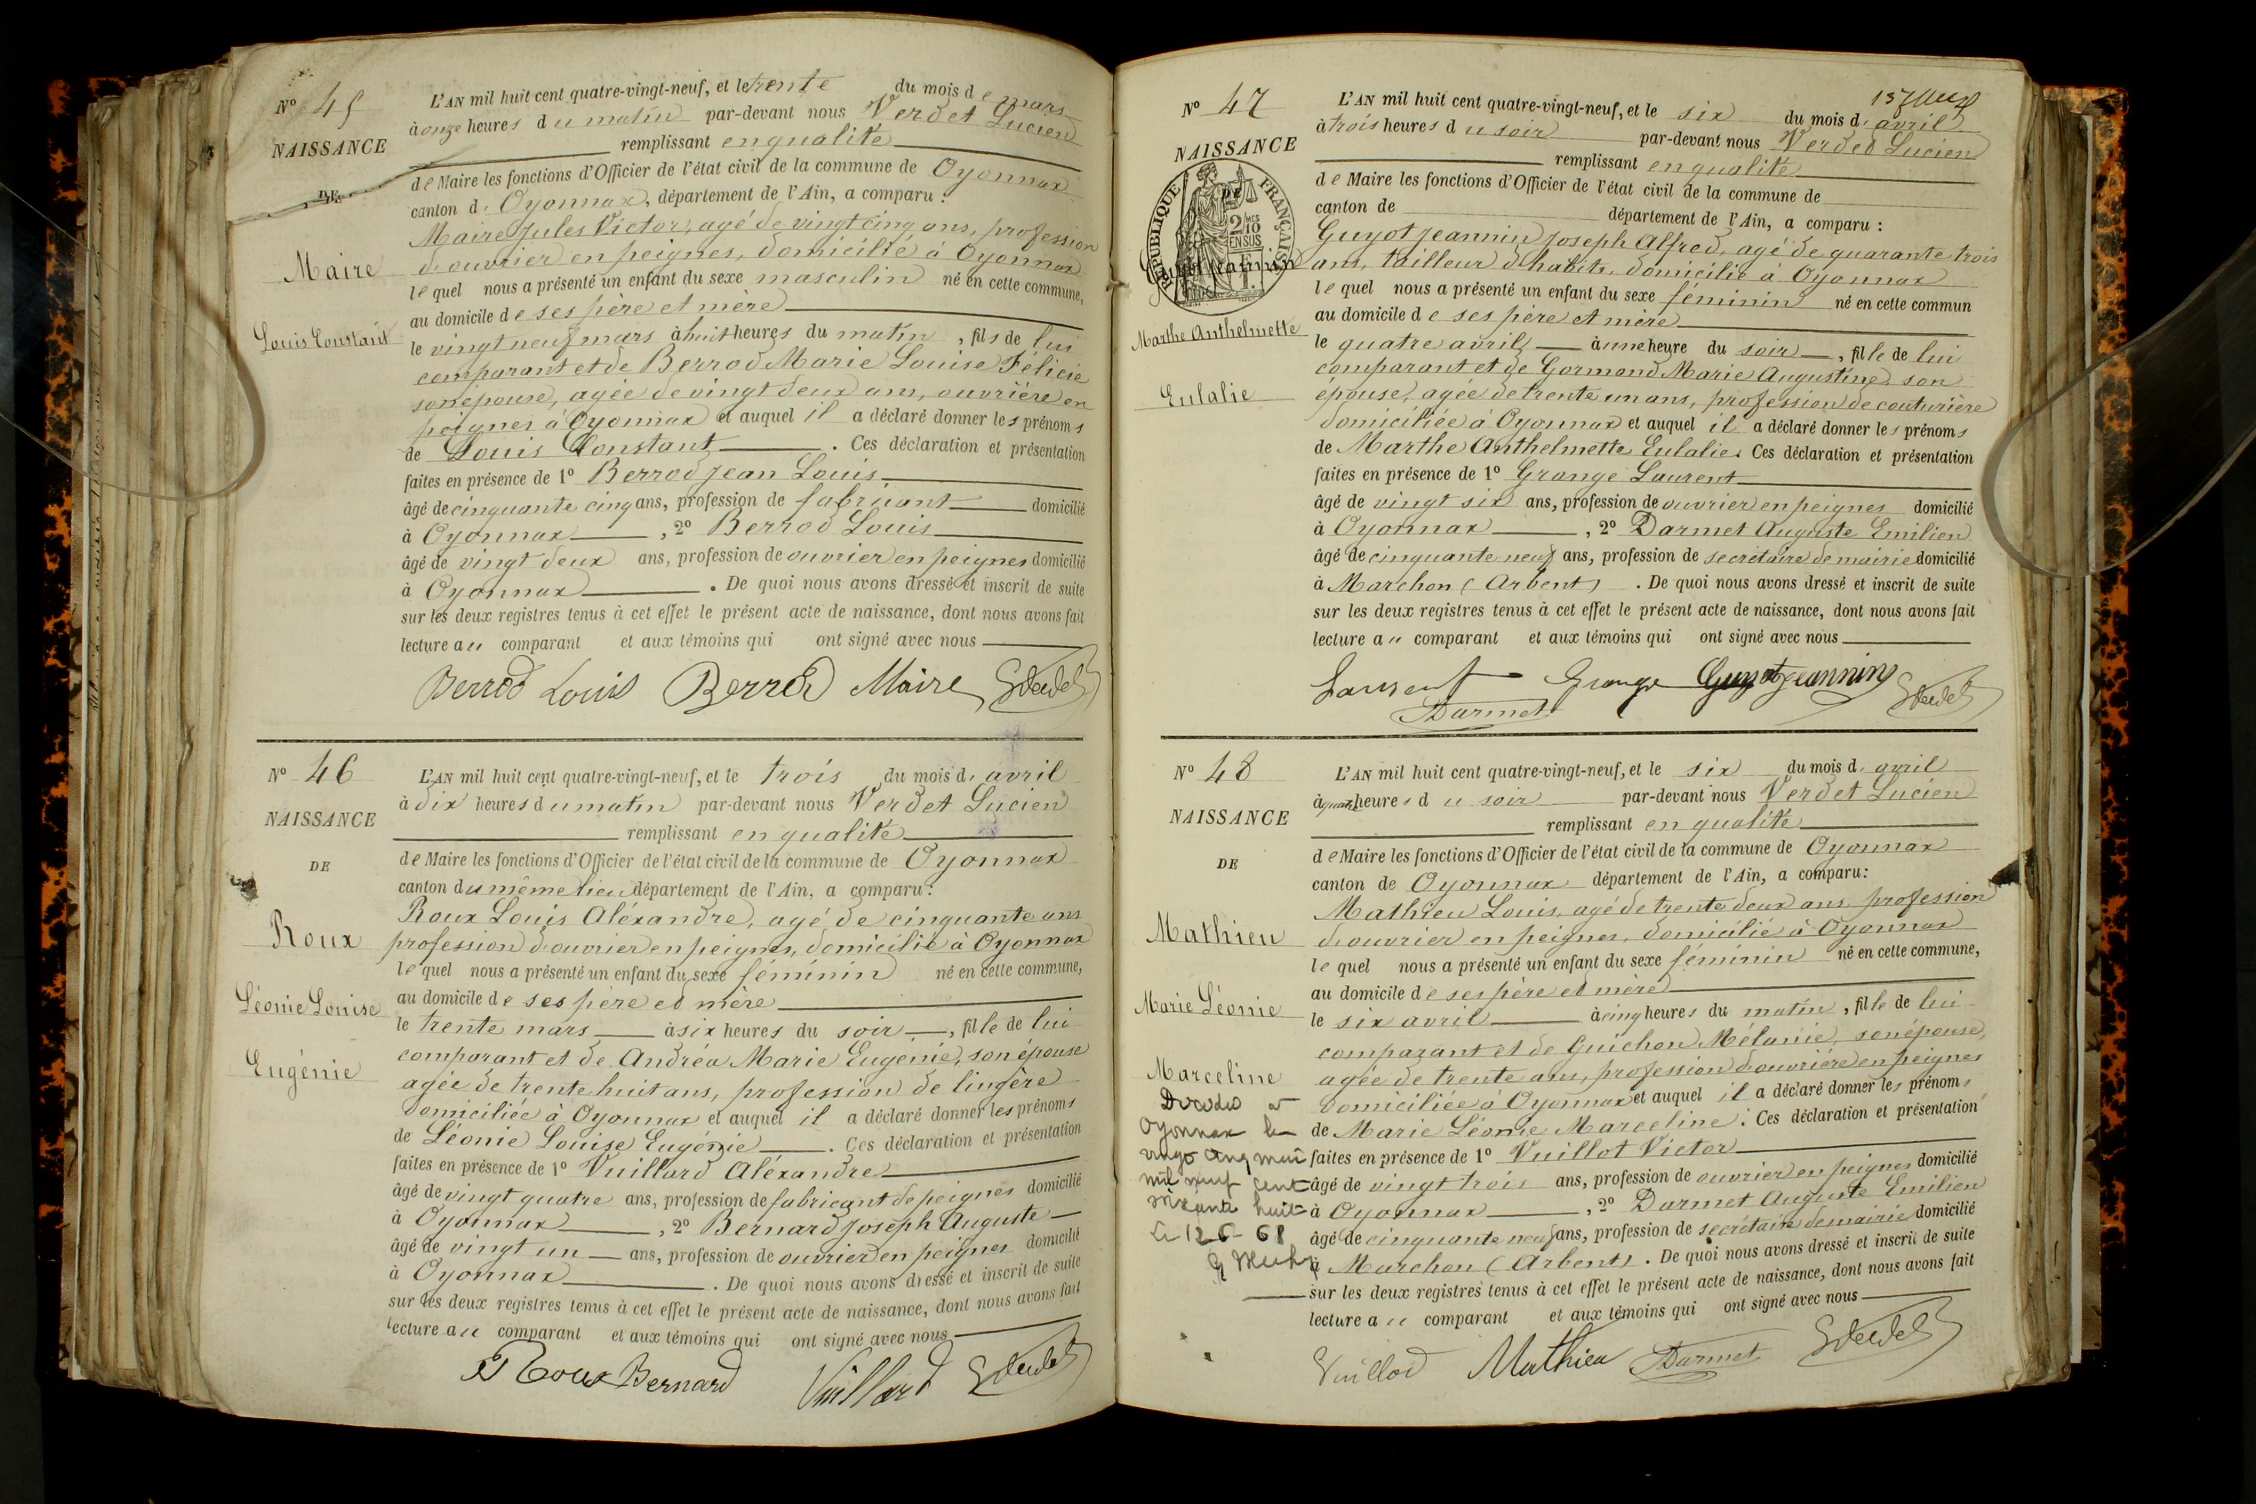 N° 45
NAISSANCE
DE
Maire
Louis Constant
L'AN mil huit cent quatre-vingt-neuf, et le trente du mois de mars
à onze heures du matin par-devant nous Verdet Lucien
remplissant en qualité
de Maire les fonctions d'Officier de l'état civil de la commune de Oyonnax
canton d' Oyonnax, département de l'Ain, a comparu :
Maire Jules Victor, agé de vingt cinq ans, profession
d'ouvrier en peignes, domicilié à Oyonnax
lequel nous a présenté un enfant du sexe masculin né en cette commune,
au domicile de ses père et mère
le vingt neuf mars à huit heures du matin, fils de lui
comparant et de Berrod Marie Louise Félicie
son épouse, agée de vingt deux ans, ouvrière en
peignes à Oyonnax et auquel il a déclaré donner les prénoms
de Louis Constant. Ces déclaration et présentation
faites en présence de 1° Berrod Jean Louis
âgé de cinquante cinq ans, profession de fabricant domicilié
à Oyonnax, 2° Berrod Louis
âgé de vingt deux ans, profession de ouvrier en peignes domicilié
à Oyonnax. De quoi nous avons dressé et inscrit de suite
sur les deux registres tenus à cet effet le présent acte de naissance, dont nous avons fait
lecture au comparant et aux témoins qui ont signé avec nous
Berrod Louis Berrod Maire Verdet
N° 46
NAISSANCE
DE
Roux
Léonie Louise
Eugénie
L'AN mil huit cent quatre-vingt-neuf, et le trois du mois d' avril
à dix heures du matin par-devant nous Verdet Lucien
remplissant en qualité
de Maire les fonctions d'Officier de l'état civil de la commune de Oyonnax
canton du même lieu département de l'Ain, a comparu :
Roux Louis Aléxandre, agé de cinquante ans
profession d'ouvrier en peignes, domicilié à Oyonnax
lequel nous a présenté un enfant du sexe féminin né en cette commune,
au domicile de ses père et mère
le trente mars à six heures du soir, fille de lui
comparant et de Andréa Marie Eugénie, son épouse
agée de trente huit ans, profession de lingère
domiciliée à Oyonnax et auquel il a déclaré donner les prénoms
de Léonie Louise Eugénie. Ces déclaration et présentation
faites en présence de 1° Vuillard Aléxandre
âgé de vingt quatre ans, profession de fabricant de peignes domicilié
à Oyonnax, 2° Bernard Joseph Auguste
âgé de vingt un ans, profession de ouvrier en peignes domicilié
à Oyonnax. De quoi nous avons dressé et inscrit de suite
sur les deux registres tenus à cet effet le présent acte de naissance, dont nous avons fait
lecture au comparant et aux témoins qui ont signé avec nous
Roux Bernard Vuillard Verdet
N° 47
NAISSANCE
DE
RÉPUBLIQUE FRANÇAISE
2/10 EN SUS
Guyot Jeannin
Marthe Anthelmette
Eulalie
L'AN mil huit cent quatre-vingt-neuf, et le six du mois d' avril
à trois heures du soir par-devant nous Verdet Lucien
remplissant en qualité
de Maire les fonctions d'Officier de l'état civil de la commune de
canton de département de l'Ain, a comparu :
Guyot Jeannin Joseph Alfred, agé de quarante trois
ans, tailleur d'habits, domicilié à Oyonnax
lequel nous a présenté un enfant du sexe féminin né en cette commun
au domicile de ses père et mère
le quatre avril à une heure du soir, fille de lui
comparant et de Gormand Marie Augustine son
épouse, agée de trente un ans, profession de couturière
domiciliée à Oyonnax et auquel il a déclaré donner les prénoms
de Marthe Anthelmette Eulalie. Ces déclaration et présentation
faites en présence de 1° Grange Laurent
âgé de vingt six ans, profession de ouvrier en peignes domicilié
à Oyonnax, 2° Darmet Auguste Emilien
âgé de cinquante neuf ans, profession de secrétaire de mairie domicilié
à Marchon (Arbent). De quoi nous avons dressé et inscrit de suite
sur les deux registres tenus à cet effet le présent acte de naissance, dont nous avons fait
lecture au comparant et aux témoins qui ont signé avec nous
Laurent Grange Guyotjeannin Verdet
Darmet
N° 48
NAISSANCE
DE
Mathieu
Marie Léonie
Marceline
Décédée à
Oyonnax le
vingt cinq mai
mil neuf cent
soixante huit
Le 12-6-68
L'AN mil huit cent quatre-vingt-neuf, et le six du mois d' avril
à quatre heures du soir par-devant nous Verdet Lucien
remplissant en qualité
de Maire les fonctions d'Officier de l'état civil de la commune de Oyonnax
canton de Oyonnax département de l'Ain, a comparu :
Mathieu Louis, agé de trente deux ans profession
d'ouvrier en peignes, domicilié à Oyonnax
lequel nous a présenté un enfant du sexe féminin né en cette commune,
au domicile de ses père et mère
le six avril à cinq heures du matin, fille de lui
comparant et de Guichon Mélanie, son épouse,
agée de trente ans, profession d'ouvrière en peignes
domiciliée à Oyonnax et auquel il a déclaré donner les prénoms
de Marie Léonie Marceline. Ces déclaration et présentation
faites en présence de 1° Vuillot Victor
âgé de vingt trois ans, profession de ouvrier en peignes domicilié
à Oyonnax, 2° Darmet Auguste Emilien
âgé de cinquante neuf ans, profession de secrétaire de mairie domicilié
à Marchon (Arbent). De quoi nous avons dressé et inscrit de suite
sur les deux registres tenus à cet effet le présent acte de naissance, dont nous avons fait
lecture au comparant et aux témoins qui ont signé avec nous
Vuillod Mathieu Darmet Verdet